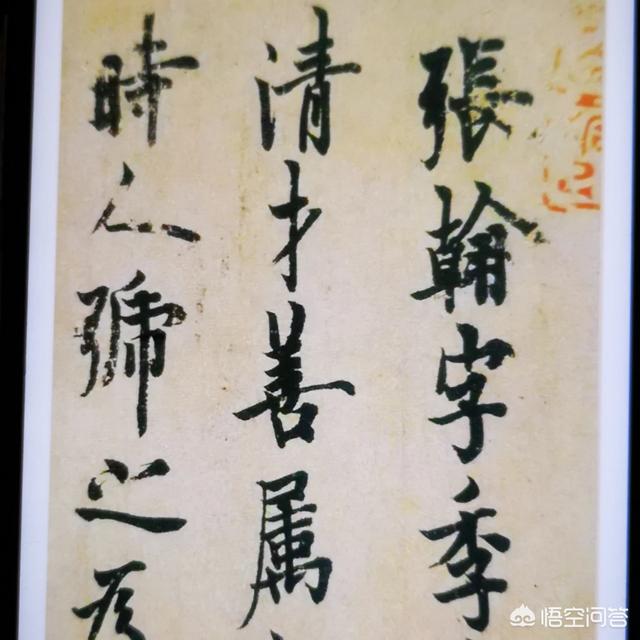 張翰字季
清才善属
時人號之為
悟空问答